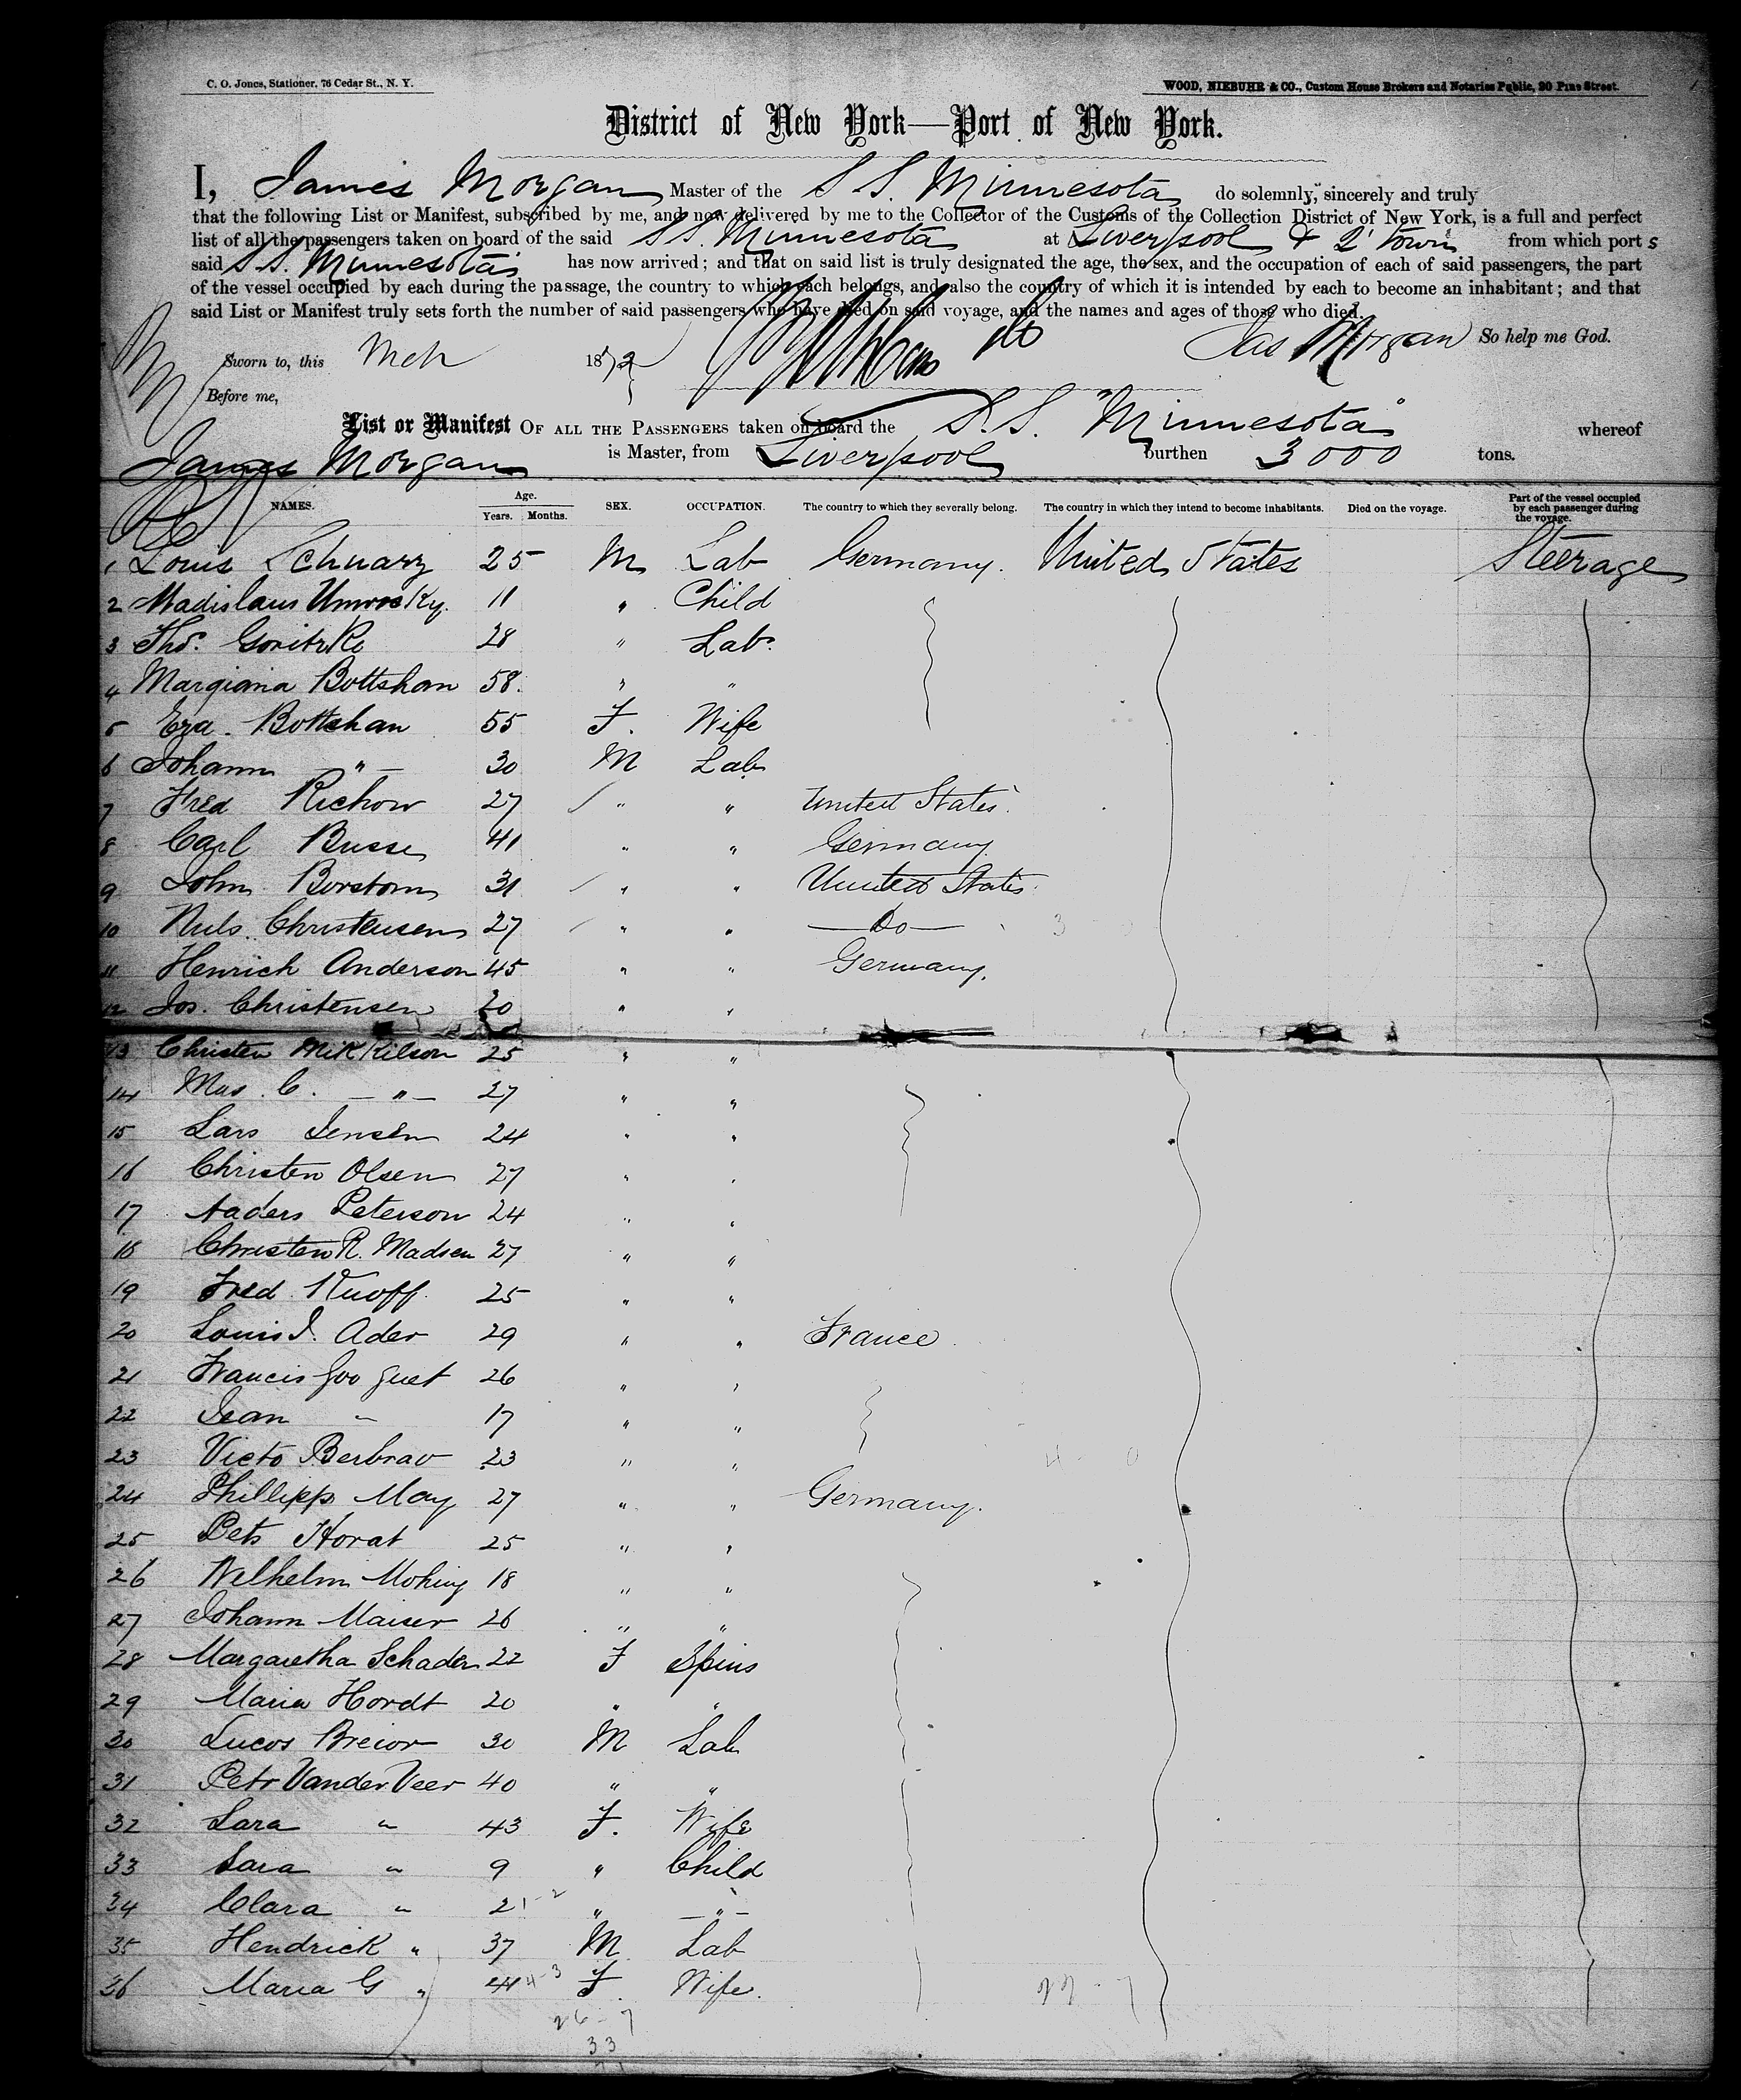 C. O. Jones, Stationer, 76 Cedar St., N. Y.
WOOD, NIEBUHR & CO., Custom House Brokers and Notaries Public, 30 Pine Street.
District of New York—Port of New York.
I, James Morgan Master of the S S. Minnesota do solemnly, sincerely and truly
that the following List or Manifest, subscribed by me, and now delivered by me to the Collector of the Customs of the Collection District of New York, is a full and perfect
list of all the passengers taken on board of the said S S. Minnesota at Liverpool & Q' town from which port s
said S. S. Minnesota has now arrived; and that on said list is truly designated the age, the sex, and the occupation of each of said passengers, the part
of the vessel occupied by each during the passage, the country to which each belongs, and also the country of which it is intended by each to become an inhabitant; and that
said List or Manifest truly sets forth the number of said passengers who have died on said voyage, and the names and ages of those who died.
Jas Morgan So help me God.
Sworn to, this Mch 1872
Before me,
List or Manifest OF ALL THE PASSENGERS taken on board the S. S. "Minnesota" whereof
James Morgan is Master, from Liverpool burthen 3000 tons.
NAMES. Age. Years. Months. SEX. OCCUPATION. The country to which they severally belong. The country in which they intend to become inhabitants. Died on the voyage. Part of the vessel occupied by each passenger during the voyage.
1 Louis Schuarz 25 M Lab Germany. United States Steerage
2 11 " Child
3 Thos. 28 " Lab.
4 Margiana Bottshan 58. " "
5 Eva. Bottshan 55 F. Wife
6 Johann — " — 30 M Lab
7 Fred Richow 27 " " United States.
8 Carl Busse 41 " " Germany
9 John Borstom 31 " " United States.
10 Nuls. Christensen 27 " " — Do —
11 Henrich Anderson 45 " " Germany.
12 Jos. Christensen 20 " "
13 Christen Mikkilson 25 " "
14 Mas. C. — " — 27 " "
15 Lars Jensen 24 " "
16 Christen Olsen 27 " "
17 Aaders Peterson 24 " "
18 Christen R. Madsen 27 " "
19 Fred. Kuoff. 25 " "
20 Louis J. Ader 29 " " France.
21 Francis Goo guet 26 " "
22 Jean " 17 " "
23 Victo Berbrav 23 " "
24 Phillipp May 27 " " Germany.
25 Pets Horat 25 " "
26 Welhelm Mohing 18 " "
27 Johann Maiser 26 " "
28 Margaretha Schader 22 F Spins
29 Maria Hordt 20 " "
30 Lucos Breior 30 M Lab
31 Petr Vander Veer 40 " "
32 Sara " 43 F. Wife
33 Sara " 9 " Child
34 Clara " 21-2 " — " —
35 Hendrick " 37 M Lab
36 Maria G " 44 4-3 F Wife.
26-7
33